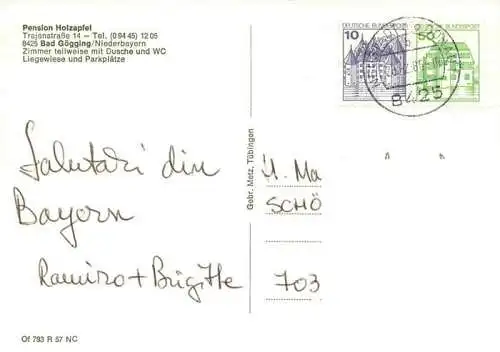 Pension Holzapfel
Trajanstraße 14 — Tel. (0 94 45) 12 05
8425 Bad Gögging/Niederbayern
Zimmer teilweise mit Dusche und WC
Liegewiese und Parkplätze
10 DEUTSCHE BUNDESPOST
50 BUNDESPOST
8425
Salutari din
Bayern
Ramiro + Brigitte
Gebr. Metz, Tübingen
H. Ma
SCHÖ
703
Of 793 R 57 NC